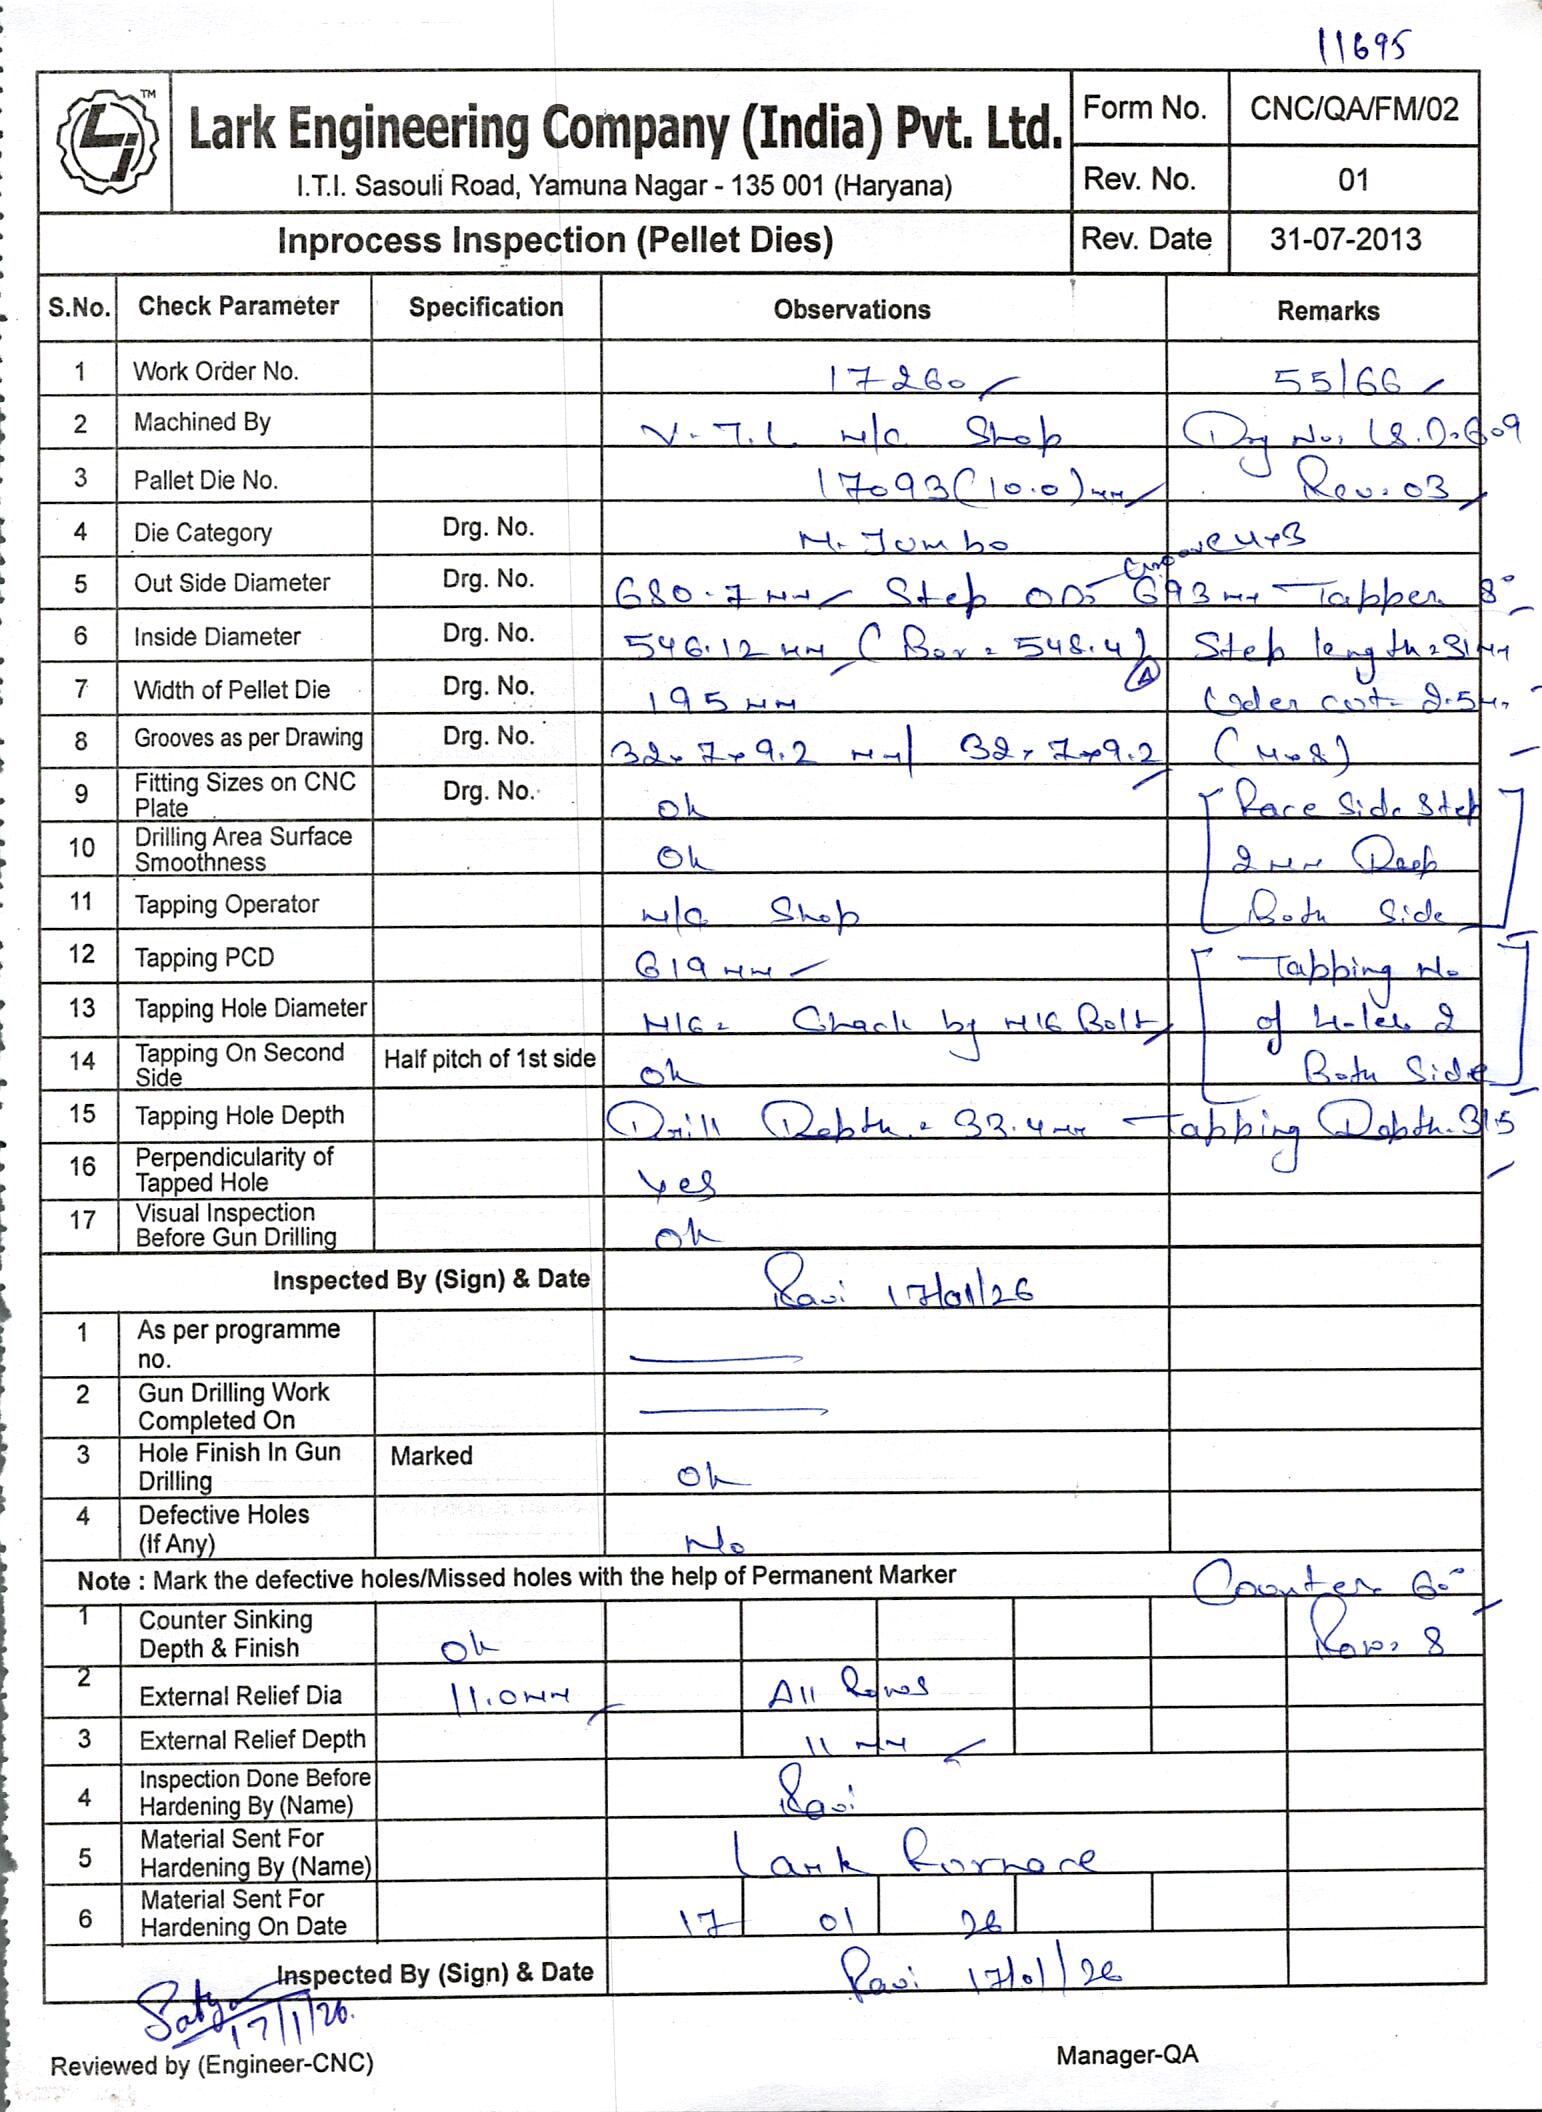 11695
TM
Lark Engineering Company (India) Pvt. Ltd.
I.T.I. Sasouli Road, Yamuna Nagar - 135 001 (Haryana)
Form No. CNC/QA/FM/02
Rev. No. 01
Inprocess Inspection (Pellet Dies) Rev. Date 31-07-2013
S.No. Check Parameter Specification Observations Remarks
1 Work Order No. 17260 55/66
2 Machined By V.T.L M/C Shop Drg No. LS.D.609
3 Pallet Die No. 17093(10.0)mm Rev. 03
4 Die Category Drg. No. M. Jumbo
Groove 4x3
5 Out Side Diameter Drg. No. 680.7 mm Step OD= 693 mm Tapper 8°
6 Inside Diameter Drg. No. 546.12 mm (Bor = 548.4) Step length = 31 mm
A
7 Width of Pellet Die Drg. No. 195 mm Uder cut- 2.5 m
8 Grooves as per Drawing Drg. No. 32x7x9.2 mm/ 32x7x9.2 (4x8)
9 Fitting Sizes on CNC Plate Drg. No. Ok Face Side Step
10 Drilling Area Surface Smoothness Ok 2 mm Deep
11 Tapping Operator M/C Shop Both Side
12 Tapping PCD 619 mm Tapping No
13 Tapping Hole Diameter M16 = Chack by M16 Bolt of Holes 2
14 Tapping On Second Side Half pitch of 1st side Ok Both Side
15 Tapping Hole Depth Drill Depth = 33.4 mm Tapping Depth. 31.5
16 Perpendicularity of Tapped Hole Yes
17 Visual Inspection Before Gun Drilling Ok
Inspected By (Sign) & Date Ravi 17/01/26
1 As per programme no.
2 Gun Drilling Work Completed On
3 Hole Finish In Gun Drilling Marked Ok
4 Defective Holes (If Any) No
Note : Mark the defective holes/Missed holes with the help of Permanent Marker Counter 60°
1 Counter Sinking Depth & Finish Ok Row. 8
2 External Relief Dia 11.0 mm All Rows
3 External Relief Depth 11 mm
4 Inspection Done Before Hardening By (Name) Ravi
5 Material Sent For Hardening By (Name) Lark Fornace
6 Material Sent For Hardening On Date 17 01 26
Inspected By (Sign) & Date Ravi 17/01/26
Satya
17/1/26.
Reviewed by (Engineer-CNC) Manager-QA